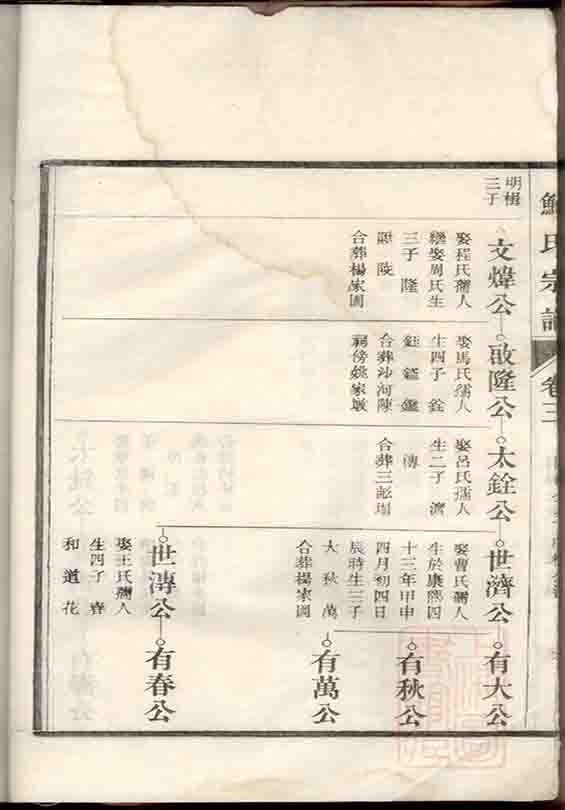 氏宗譜
卷三
明楫
三子
文煒公
娶程氏孺人
繼娶周氏生
三子 隆
陵
合葬楊家園
啟隆公
娶馬氏孺人
生四子 銓
鈺 鑑
合葬沙河陳
祠傍姚家墩
太銓公
娶呂氏孺人
生二子 濟
傳
合葬三
世濟公
娶曹氏孺人
生於康熙四
十三年甲申
四月初四日
辰時生三子
大 秋 萬
合葬楊家園
有大公
有秋公
有萬公
世漙公
娶王氏孺人
生四子 春
和 道 花
有春公